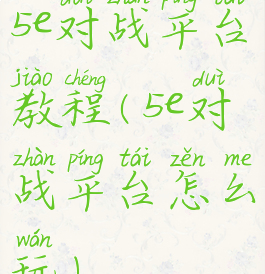 duì zhàn píng tái
5e对战平台
jiào chéng duì
教程(5e对
zhàn píng tái zěn me
战平台怎么
wán
玩)